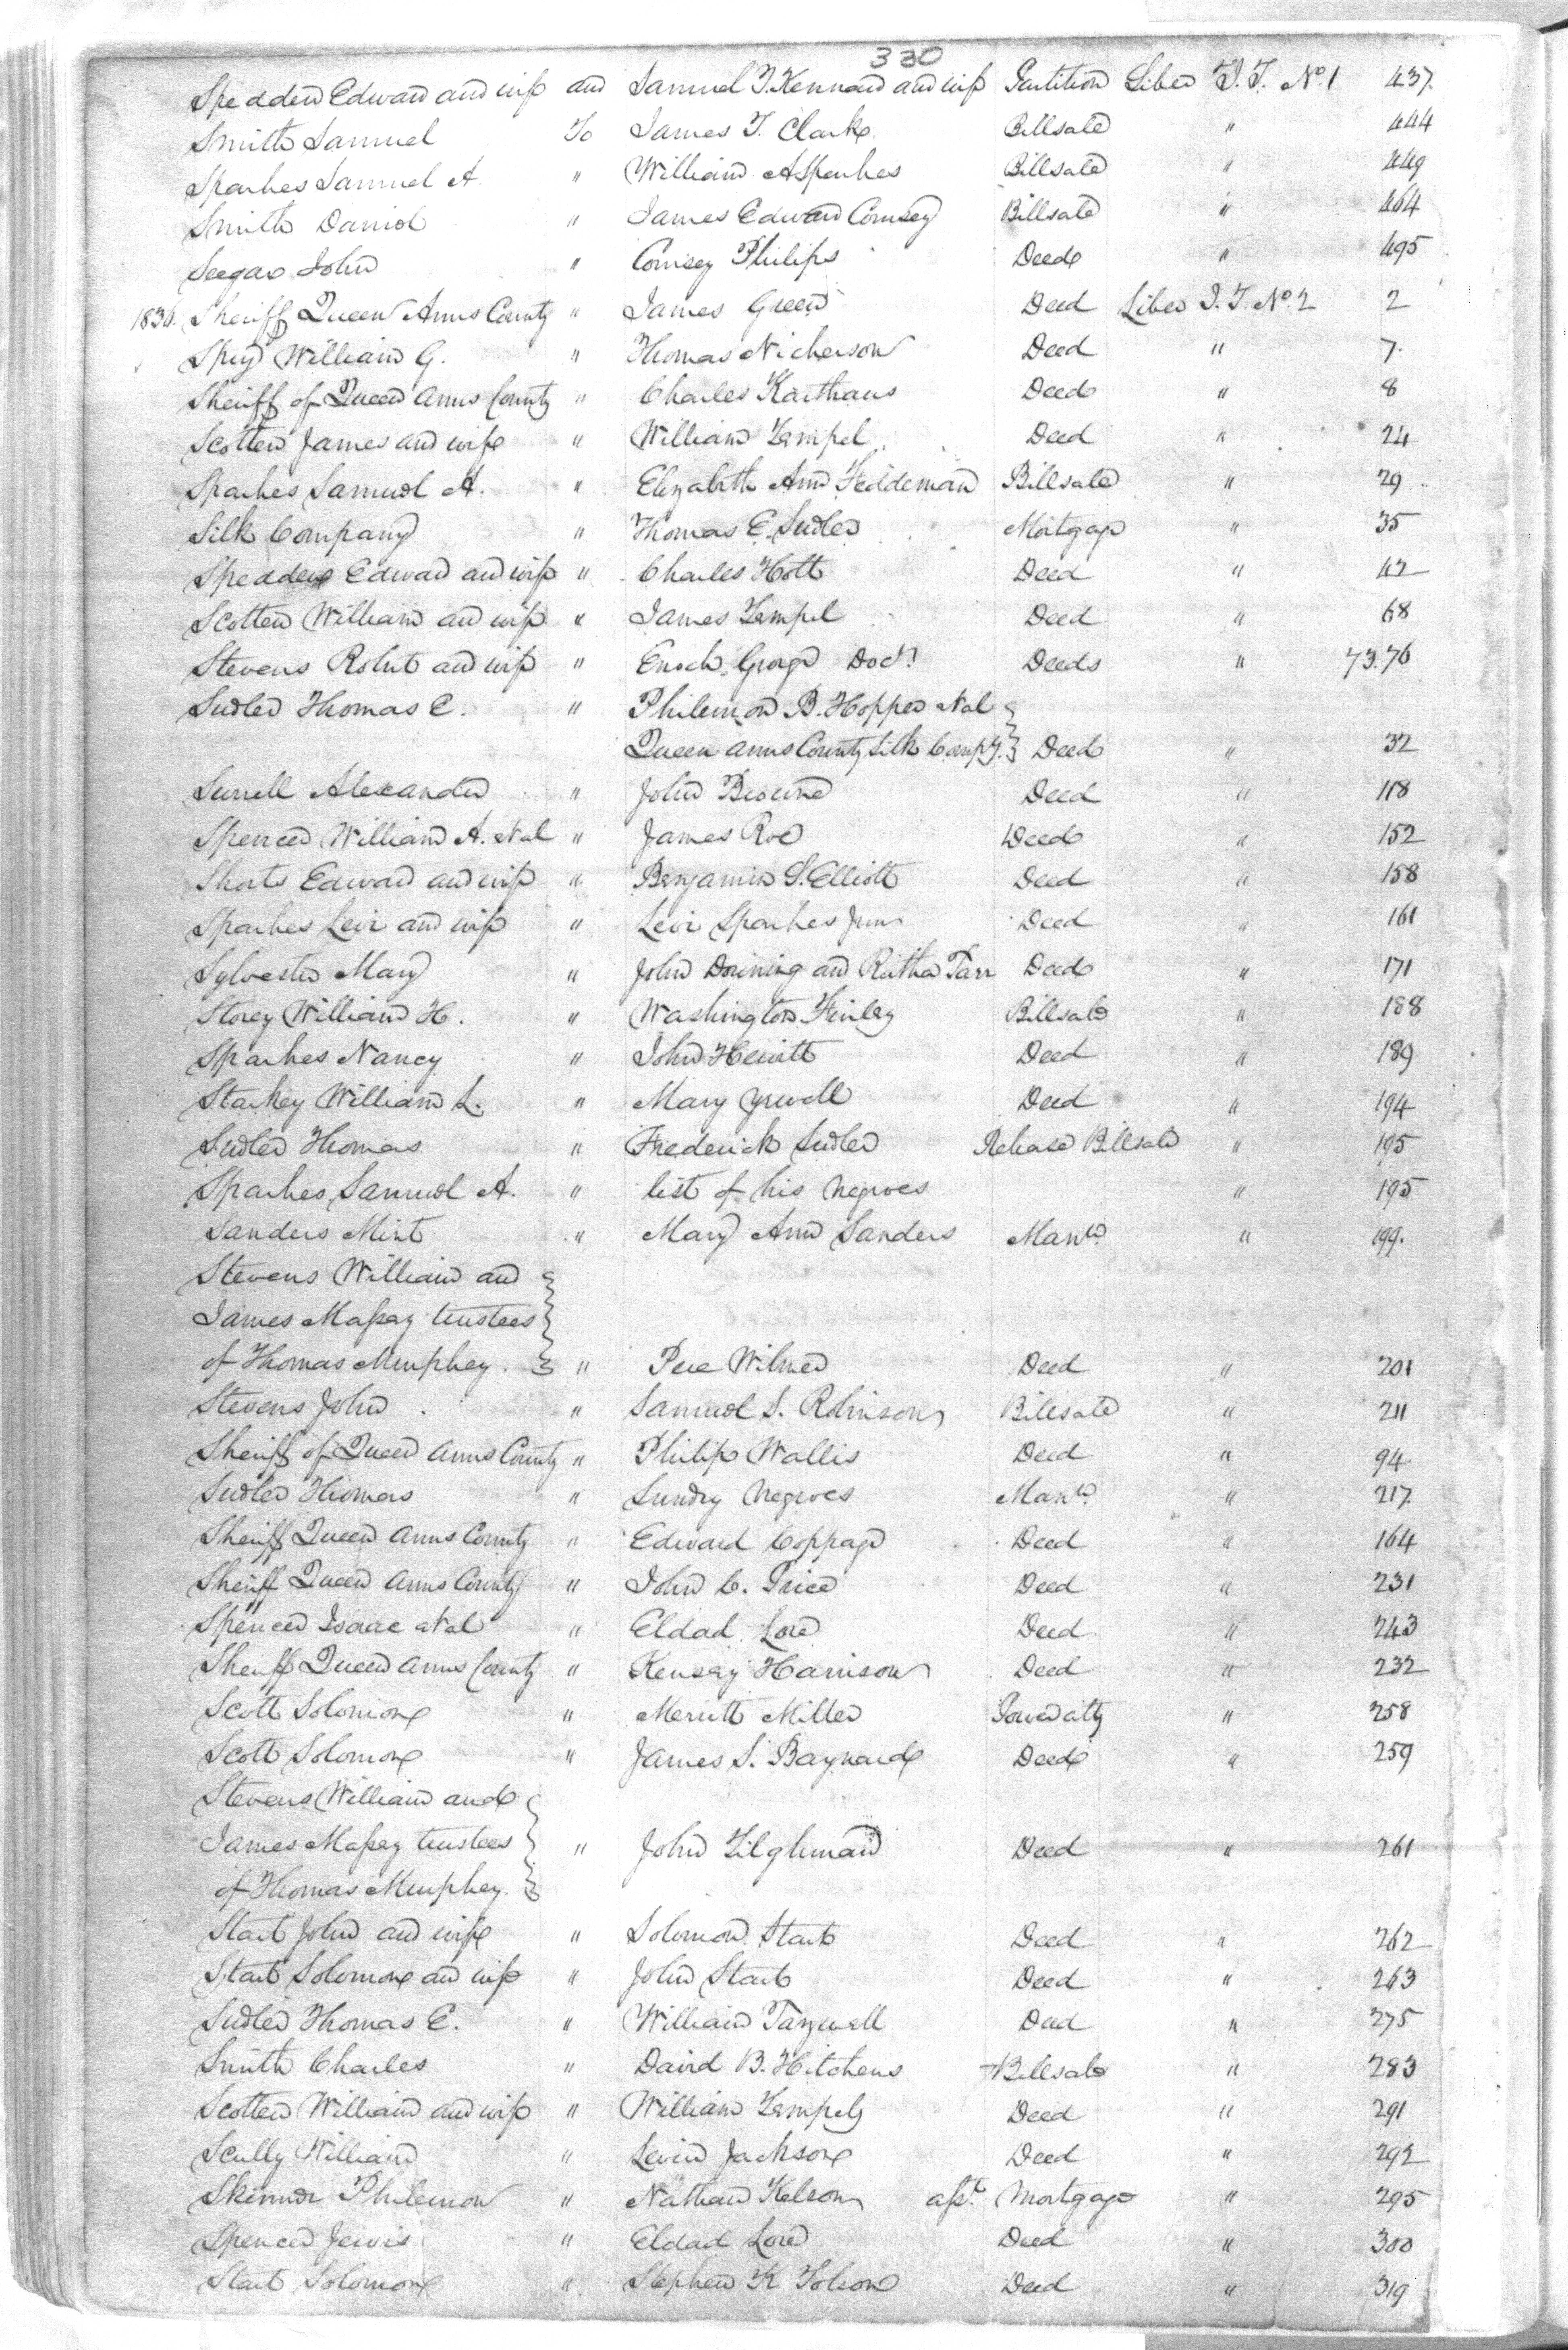 330
Spedden Edward and wife and Samuel T. Kennard and wife Partition Liber T.T. No. 1 437
Smith Samuel To James T. Clarke Billsale " 444
Sparkes Samuel A. " William A Sparkes Billsale " 449
Smith Daniel " James Edward Comsey Billsale " 464
Seegar John " Comsey Philips Deed " 495
Sheriff Queen Anns County " James Green Deed Liber J.T. No. 2 2
William G. " Thomas Nickerson Deed " 7.
Sheriff of Queen Anns County " Charles Karthaus Deed " 8
Scotten James and wife " William Deed " 24
Sparkes Samuel A. " Elizabeth Ann Feddeman Billsale " 29
Silk Company " Thomas E. Sudler Mortgage " 35
Spedden Edward and wife " Charles Hott Deed " 42
Scotten William and wife " James Deed " 68
Stevens Robert and wife " Enoch George Doct. Deeds " 73.76
Sudler Thomas E. " Philemon B. Hopper et al
Queen Anns County Silk Compy. Deed " 32
Alexander " John Browne Deed " 118
Spencer William A. et al " James Roe Deed " 152
Shorts Edward and wife " Benjamin S. Elliott Deed " 158
Sparkes Levi and wife " Levi Sparkes Junr Deed " 161
Sylvester Mary " John Downing and Rutha Tarr Deed " 171
Storey William H. " Washington Finley Billsale " 188
Sparkes Nancy " John Hewitt Deed " 189
Starkey William L. " Mary Yewell Deed " 194
Sudler Thomas " Frederick Sudler Release Billsale " 195
Sparkes Samuel A. " list of his Negroes " 195
Sanders Mint " Mary Ann Sanders Mann. " 199.
Stevens William and
James Massey trustees
of Thomas Murphey. " Pere Wilmer Deed " 201
Stevens John " Samuel S. Robinson Billsale " 211
Sheriff of Queen Anns County " Philip Wallis Deed " 94
Sudler Thomas " Sundry Negroes Mann. " 217.
Sheriff Queen Anns County " Edward Coppage Deed " 164
Sheriff Queen Anns County " John C. Price Deed " 231
Spencer Isaac et al " Eldad Lore Deed " 243
Sheriff Queen Anns County " Kensey Harrison Deed " 232
Scott Solomon " Merritt Miller Power atty " 258
Scott Solomon " James S. Baynard Deed " 259
Stevens William and
James Massey trustees " John Tilghman Deed " 261
of Thomas Murphey.
Start John and wife " Solomon Start Deed " 262
Start Solomon and wife " John Start Deed " 263
Sudler Thomas E. " William Tarywell Deed " 275
Smith Charles " David B. Hitchens Billsale " 283
Scotten William and wife " William Deed " 291
Scully William " Levin Jackson Deed " 292
Skinner Philemon " Nathan Kelson asst. Mortgage " 295
Spencer Jervis " Eldad Lore Deed " 300
Start Solomon " Stephen K Tolson Deed " 319